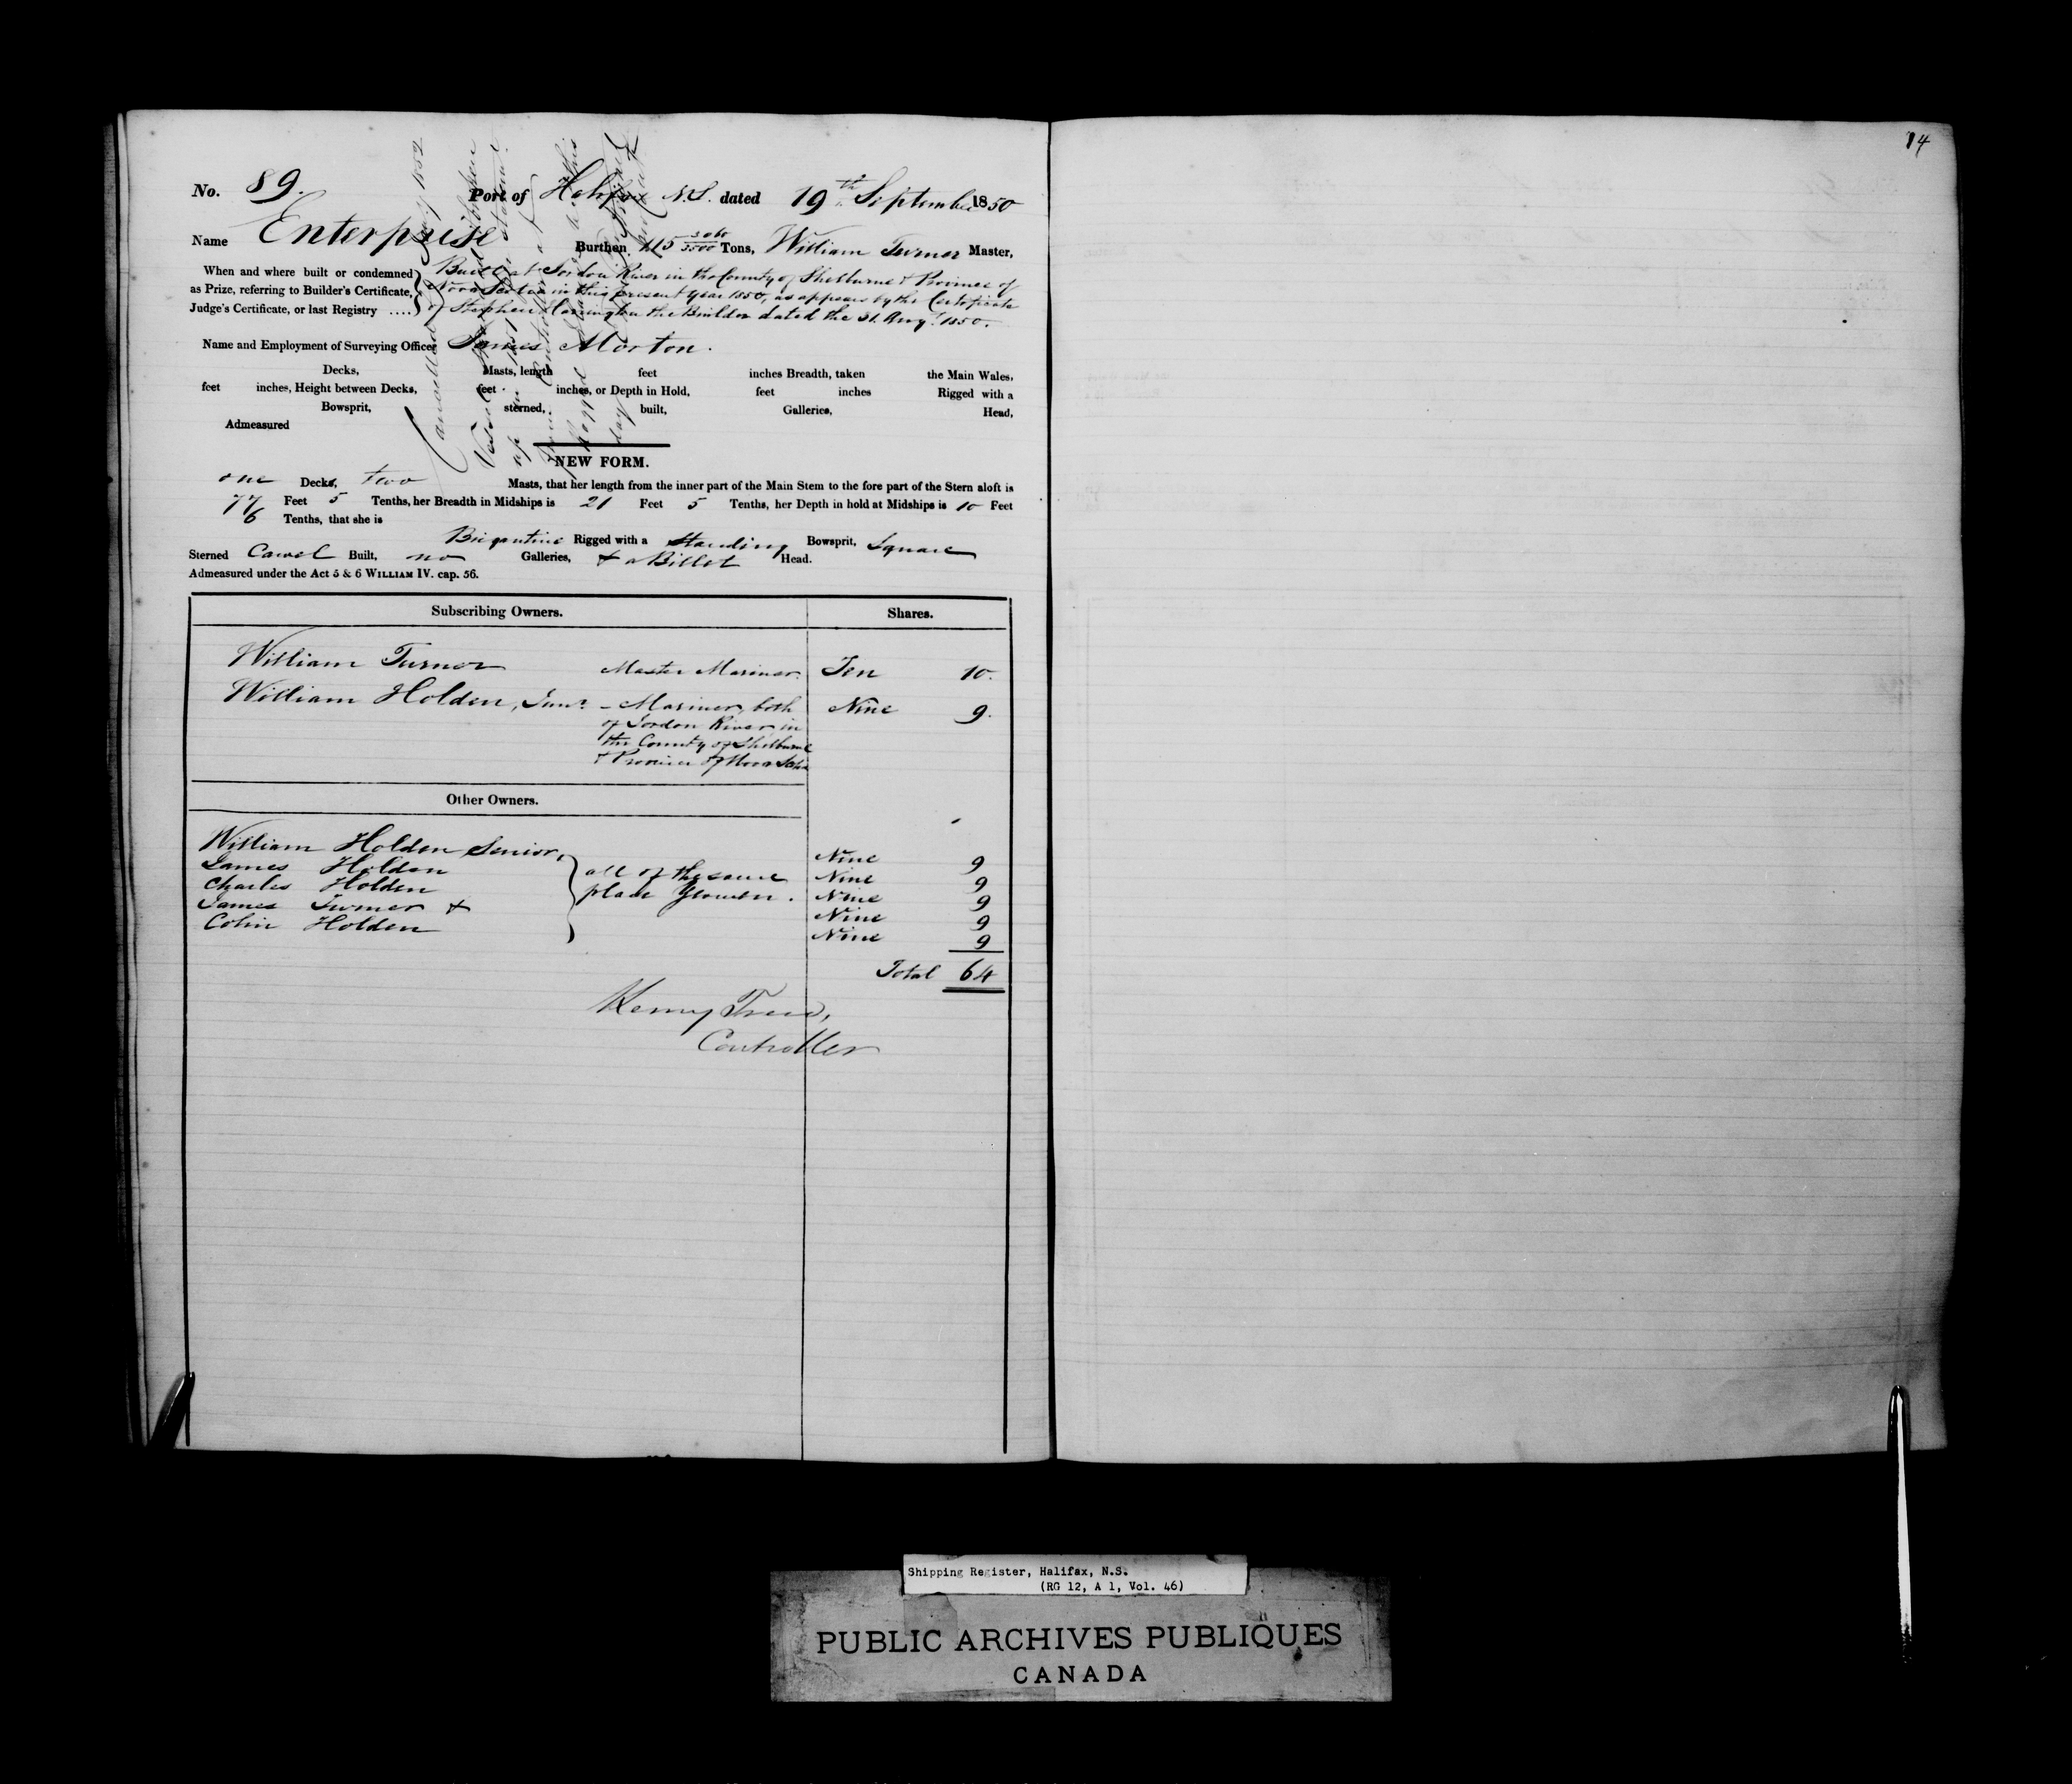 14
No. 89.
Port of Halifax N.S. dated 19th September 1850
Name Enterprise Burthen 115 3060/3500 Tons, William Turner Master,
When and where built or condemned as Prize, referring to Builder's Certificate, Judge's Certificate, or last Registry ....
Built at Jordon River in the County of Shelburne & Province of
Nova Scotia in this present year 1850, as appears by the Certificate
of Stephen the Builder dated the 31. Augt. 1850.
Name and Employment of Surveying Officer James Morton.
Decks, Masts, length feet inches Breadth, taken the Main Wales,
feet inches, Height between Decks, feet inches, or Depth in Hold, feet inches Rigged with a
Bowsprit, sterned, built, Galleries, Head,
Admeasured
Cancelled 1852
Vessel
NEW FORM.
one Decks, two Masts, that her length from the inner part of the Main Stem to the fore part of the Stern aloft is
77 Feet 5 Tenths, her Breadth in Midships is 21 Feet 5 Tenths, her Depth in hold at Midships is 10 Feet
6 Tenths, that she is
Brigantine Rigged with a Standing Bowsprit, Square
Sterned Carvel Built, no Galleries, & a Billet Head.
Admeasured under the Act 5 & 6 WILLIAM IV. cap. 56.
Subscribing Owners. Shares.
William Turner Master Mariner Ten 10.
William Holden, Junr. - Mariner, both Nine 9.
of Jordon River in
the County of Shelburne
& Province of Nova Scotia
Other Owners.
William Holden Senior, Nine 9
James Holden all of the same Nine 9
Charles Holden place Yeomen. Nine 9
James Turner & Nine 9
Colin Holden Nine 9
Total 64
Henry
Controller
Shipping Register, Halifax, N.S.
(RG 12, A 1, Vol. 46)
PUBLIC ARCHIVES PUBLIQUES
CANADA